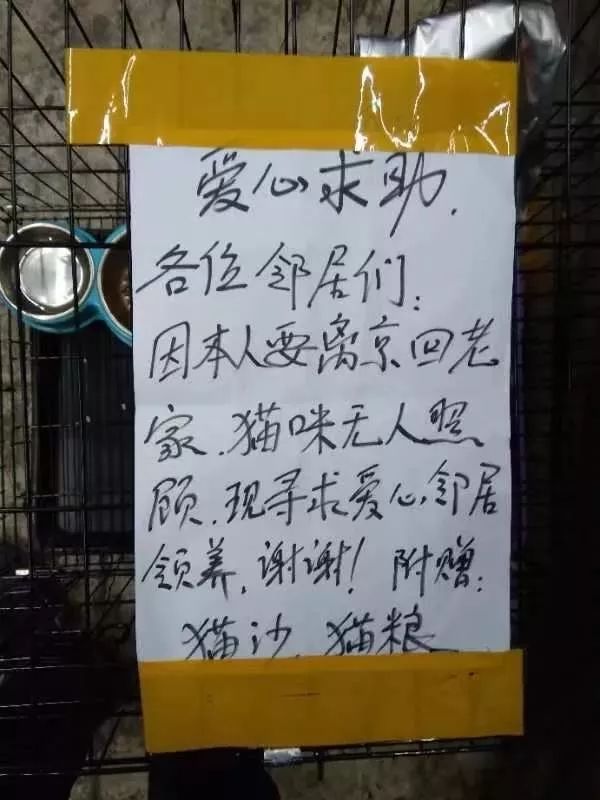 爱心求助.
各位邻居们:
因本人要离京回老
家.猫咪无人照
顾.现寻求爱心邻居
领养.谢谢! 附赠:
猫沙.猫粮